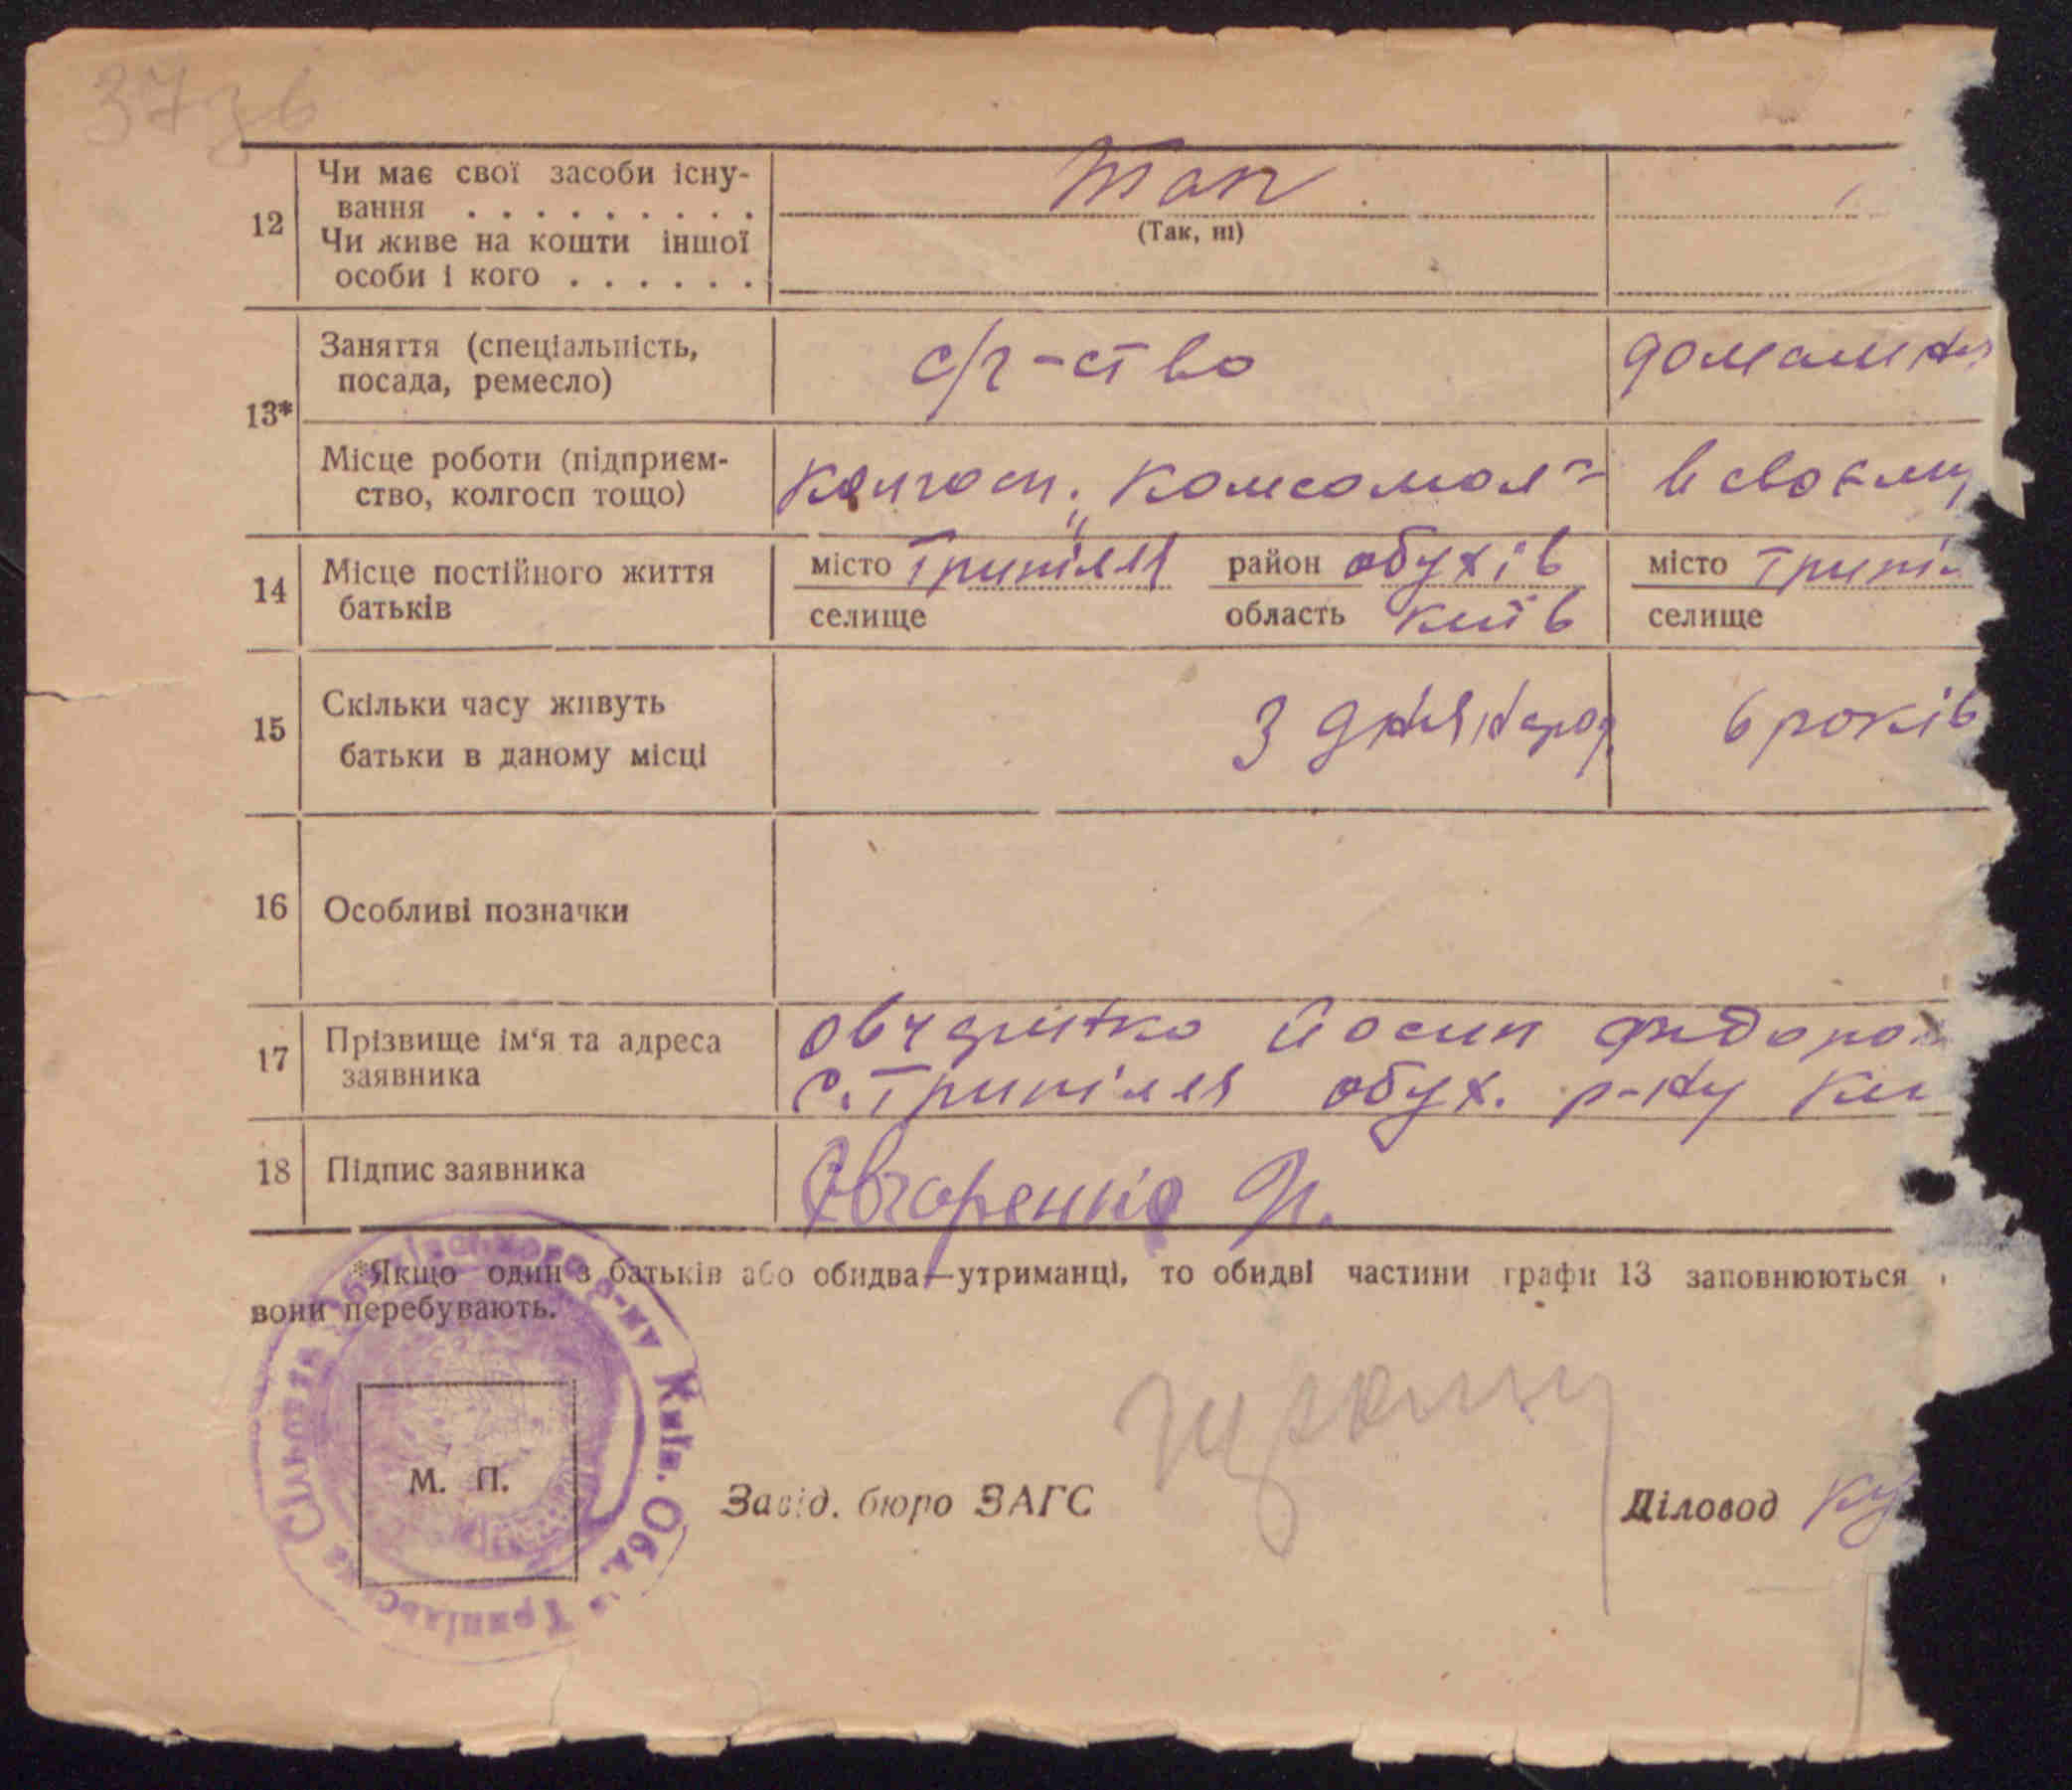 37 зв
12 Чи має свої засоби існу-
вання . . . . . . . . . Так
(Так, ні)
Чи живе на кошти іншої
особи і кого . . . . . .
13* Заняття (спеціальність, с/г-ство домашня
посада, ремесло)
Місце роботи (підприєм- Колгосп „Комсомол" в своєму
ство, колгосп тощо)
14 Місце постійного життя місто Трипілля район Обухів місто Трипіл
батьків селище область Київ селище
15 Скільки часу живуть з дня народ. 6 років
батьки в даному місці
16 Особливі позначки
17 Прізвище ім'я та адреса Йосип
заявника с. Трипілля Обух. р-ну Ки
18 Підпис заявника
*Якщо один з батьків або обидва—утриманці, то обидві частини графи 13 заповнюються
вони перебувають.
Трипільська Сільрада Обухівського р-ну Київ. Обл.
М. П.
Завід. бюро ЗАГС Діловод